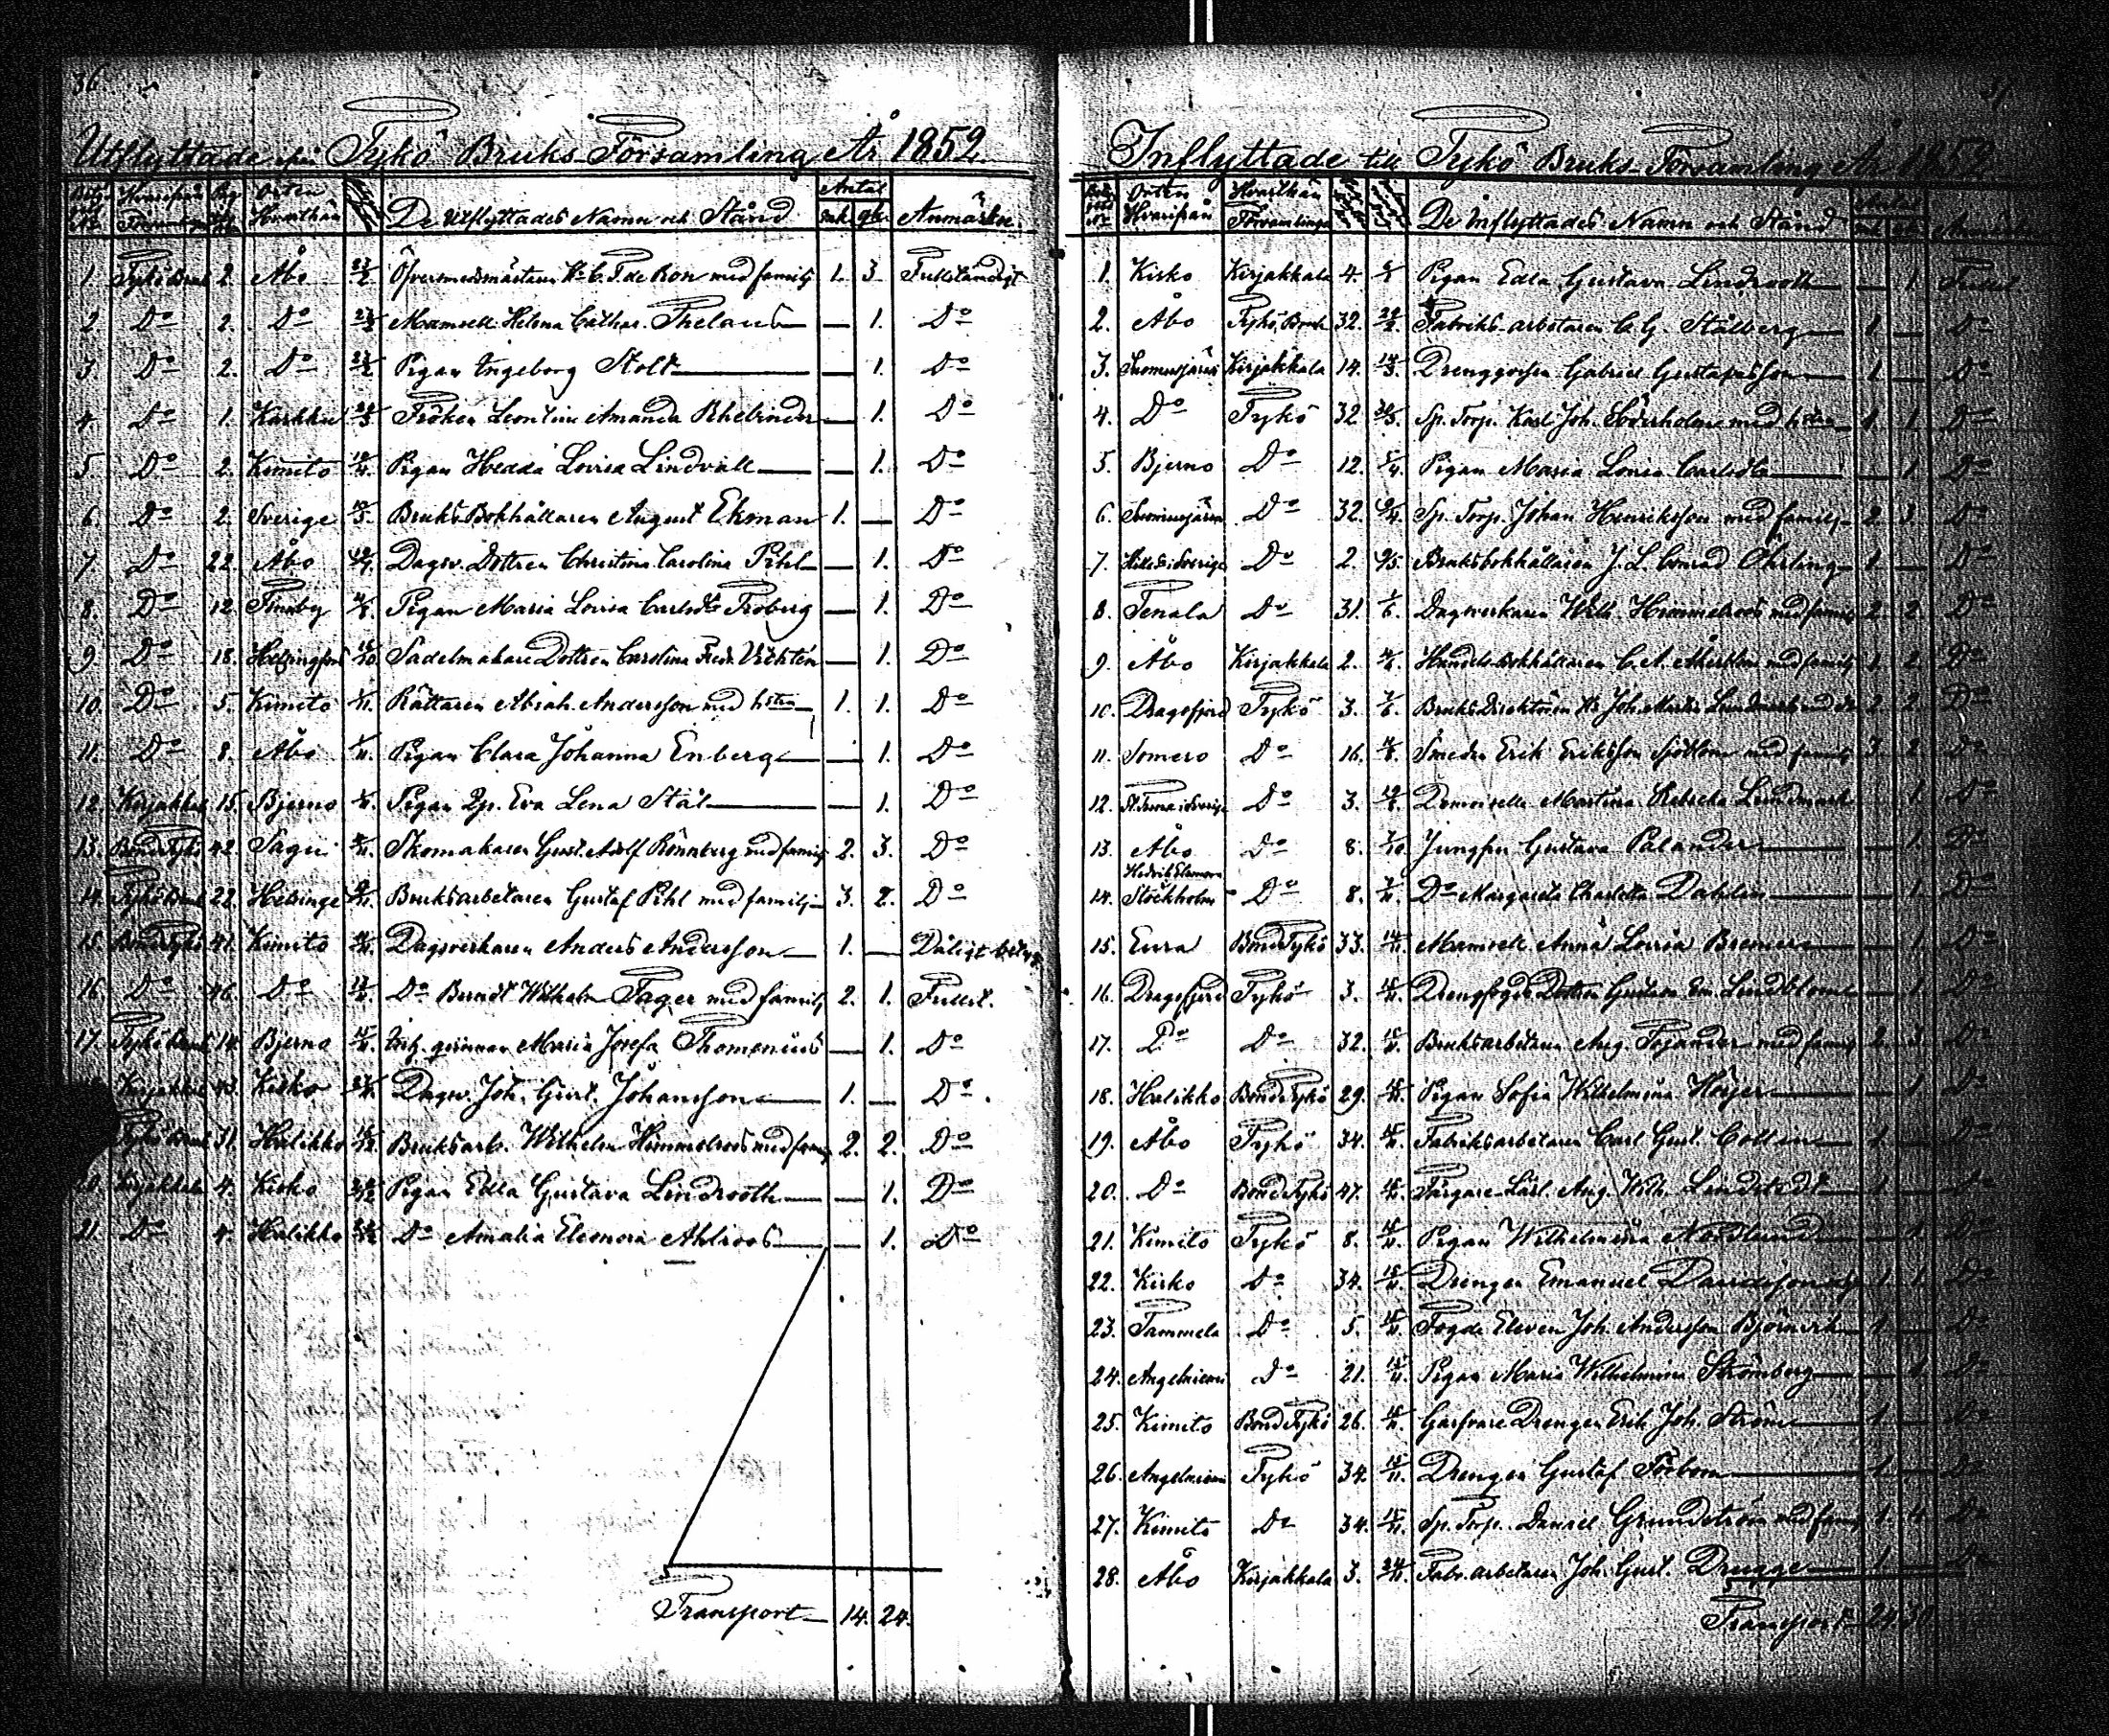 36.
Utflyttade ifrån Tykö Bruks Församling År 1852.
Hvarifrån Pag. Orten Hvarthän De Utflyttades Namn och Stånd Antal mk. qk. Anmärkn.
1. Tykö Bruk 2. Åbo 23/2 Öfversmedsmästaren Hr C. F. de Ron med familj 1. 3. Fullständigt
2. Do 2. Do 23/2 Mamsell Helena Cathar. Thelaus — 1. Do
3. Do 2. Do 23/2 Pigan Ingeborg Stolt — 1. Do
4. Do 1. Karkku Fröken Leontine Amanda Rhebinder — 1. Do
5. Do 2. Kimito Pigan Hedda Lovisa Lindvall — 1. Do
6. Do 2. Sverige Bruks Bokhållaren August Ekman 1. — Do
7. Do 22. Åbo Dagsv. Dottren Christina Carolina Pihl — 1. Do
8. Do 12. Finnby Pigan Maria Lovisa Carlsdtr Froberg — 1. Do
9. Do 18. Helsingfors Sadelmakare Dottren Carolina Fredr. — 1. Do
10. Do 5. Kimito 1/11. Rättaren Abrah. Andersson med hstrn 1. 1. Do
11. Do 8. Åbo 1/11. Pigan Clara Johanna Enberg — 1. Do
12. Kirjakkala 15. Bjerno Pigan Eva Lena Stål — 1. Do
13. Bond Tykö 42. Sagu Skomakaren Gust. Adolf Rönnberg med familj 2. 3. Do
14. Tykö Bruk 22. Helsinge Bruksarbetaren Gustaf Pihl med familj 3. 2. Do
15. Bond Tykö 41. Kimito Dagsverkaren Anders Andersson 1. — Dåligt
16. Do 46. Do Do Berndt Wilhelm Fager med familj 2. 1. Fullst.
17. Tykö Bruk 14. Bjerno qvinnan Maria Josefa Thomenius — 1. Do
Kirjakkala 43. Kisko Dagsv. Joh. Gust. Johansson 1. — Do.
Tykö Bruk 31. Halikko Bruksarb. Wilhelm Himmelroos med familj 2. 2. Do
20. Kirjakkala 4. Kisko Pigan Edla Gustava Lindrooth — 1. Do
21. Do 4. Halikko Do Amalia Eleonora Ahlroos — 1. Do
Transport 14. 24.
37
Inflyttade till Tykö Bruks Församling År 1852
Orten Hvarifrån Hvarthän Församlingen De Inflyttades Namn och Stånd Antal
1. Kisko Kirjakkala 4. Pigan Edla Gustava Lindrooth — 1. Full
2. Åbo Tykö Bruk 32. Fabriks-arbetaren C. G. Stålberg 1. — Do
3. Suomusjärvi Kirjakkala 14. 14/3. Drenggossen Gabriel Gustafsson 1. — Do
4. Do Tykö 32. Sp. Torp. Karl Joh. Söderholm med hstrn 1. 1. Do
5. Bjerno Do 12. Pigan Maria Lovisa Carlsdtr — 1. Do
6. Suomusjärvi Do 32. Sp. Torp. Johan Henriksson med familj 2. 3. Do
7. Sverige Do 2. 9/5. Bruksbokhållaren J. L. Conrad Öhrling 1. — Do
8. Tenala Do 31. 1/6. Dagsverkaren Wilh. Himmelroos med familj 2. 2. Do
9. Åbo Kirjakkala 2. Handels-bokhållaren C. A. Åkerblom med familj 1. 2. Do
10. Dragsfjerd Tykö 3. Bruks Direktören Hr Joh. Martin Lindmark 2. 2. Do
11. Somero Do 16. Smeden Erik Eriksson Sjöblom med familj 3. 2. Do
12. Sverige Do 3. Demoiselle Martina Lindmark 1. Do
13. Åbo Do 8. 7/10. Jungfru Gustava Palander — 1. Do
14. Hedvik Eleonora Stockholm Do 8. Do Margareta Charlotta Dahlin — 1. Do
15. Eura Bond Tykö 33. Mamsell Anna Lovisa Bremer — 1. Do
16. Dragsfjerd Tykö 3. Drengfogde Dottren Gustava Em. Lindblom — 1. Do
17. Do Do 32. Bruksarbetaren Aug. Fojander med familj 2. 3. Do
18. Halikko Bond Tykö 29. Pigan Sofia Wilhelmina Höijer — 1. Do
19. Åbo Tykö 34. Fabriksarbetaren Carl Gust. Collin 1. — Do
20. Do Bond Tykö 47. Färgare-Lärl. Aug. Wilh. Lindstedt 1. — Do
21. Kimito Tykö 8. Pigan Wilhelmina Nordlund — 1. Do
22. Kisko Do 34. Drengen Emanuel Davidsson 1. 1. Do
23. Tammela Do 5. Fogde Eleven Joh. Andersson 1. — Do
24. Angelniemi Do 21. Pigan Maria Wilhelmina Strömberg — 1. Do
25. Kimito Bond Tykö 26. Garfvare Drengen Erik Joh. Ström 1. — Do
26. Angelniemi Tykö 34. Drengen Gustaf Forbom 1. — Do
27. Kimito Do 34. Sp. Torp. Daniel Grundström med familj 1. 4. Do
28. Åbo Kirjakkala 3. Fabr. arbetaren Joh. Gust. Drugge 1. — Do
Transport